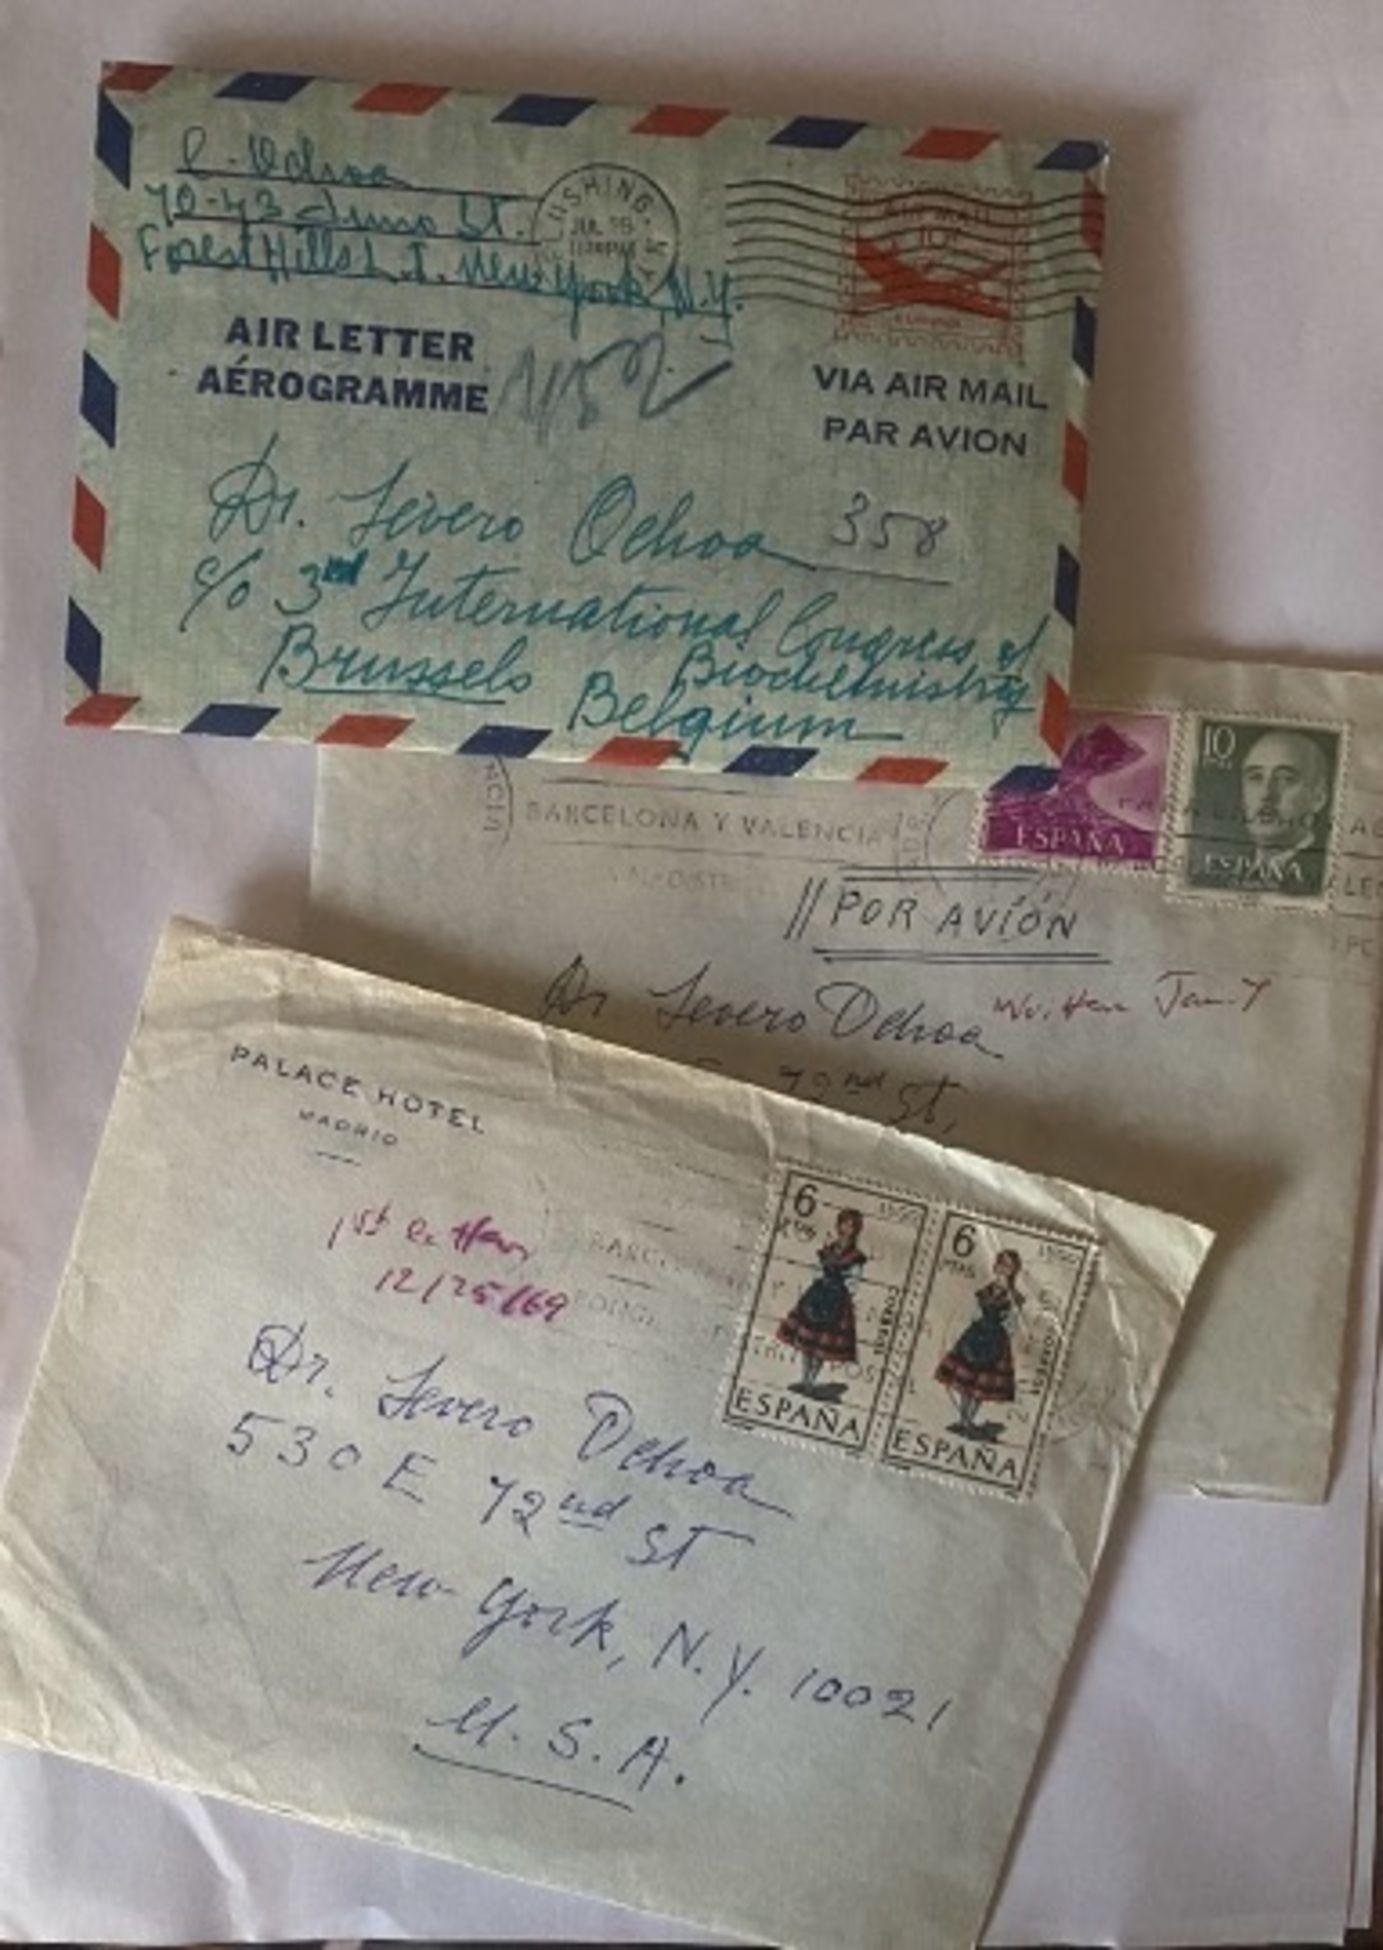 C. Ochoa
70-43 Juno St.
Forest Hills L. I. New York, N.Y.
USHING.
JUL
AIR MAIL
10¢
AIR LETTER
AÉROGRAMME
VIA AIR MAIL
PAR AVION
Dr. Severo Ochoa
358
c/o 3rd International Congress of
Biochemistry
Brussels
Belgium
NCIA
BARCELONA Y VALENCIA
ESPAÑA
10
ESPAÑA
POR AVIÓN
Dr Severo Ochoa
Written Jan. 7
72nd St,
PALACE HOTEL
MADRID
1st
12/25/69
6
PTAS
ESPAÑA
6
PTAS
ESPAÑA
Dr. Severo Ochoa
530 E 72nd St
New York, N.Y. 10021
U. S. A.